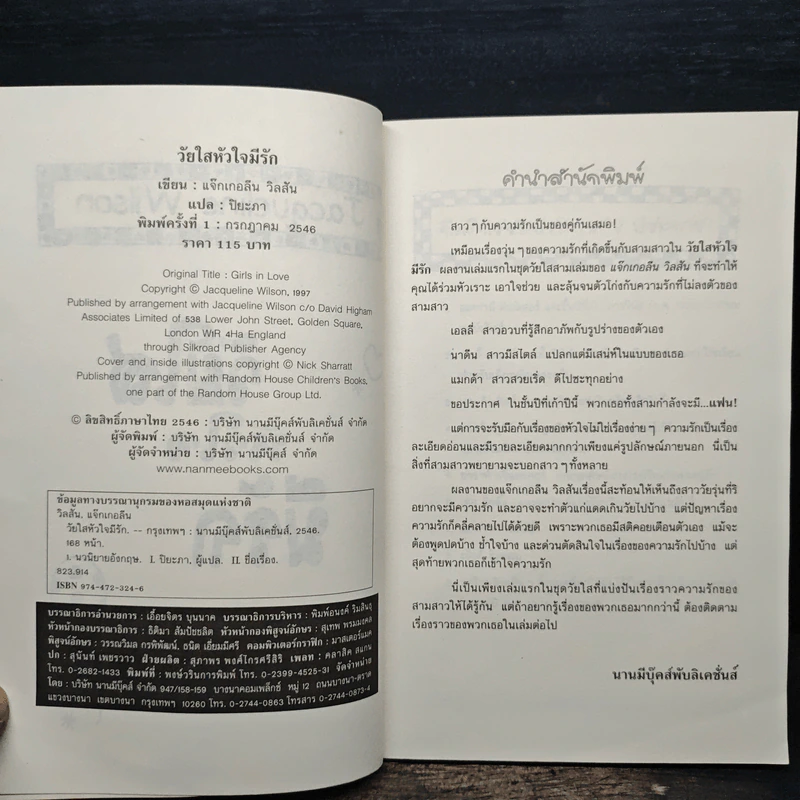 วัยใสหัวใจมีรัก
เขียน : แจ๊กเกอลีน วิลสัน
แปล : ปิยะภา
พิมพ์ครั้งที่ 1 : กรกฎาคม 2546
ราคา 115 บาท
Original Title : Girls in Love
Copyright © Jacqueline Wilson, 1997
Published by arrangement with Jacqueline Wilson c/o David Higham
Associates Limited of 538 Lower John Street, Golden Square,
London W1R 4Ha England
through Silkroad Publisher Agency
Cover and inside illustrations copyright © Nick Sharratt
Published by arrangement with Random House Children's Books,
one part of the Random House Group Ltd.
© ลิขสิทธิ์ภาษาไทย 2546 : บริษัท นานมีบุ๊คส์พับลิเคชั่นส์ จำกัด
ผู้จัดพิมพ์ : บริษัท นานมีบุ๊คส์พับลิเคชั่นส์ จำกัด
ผู้จัดจำหน่าย : บริษัท นานมีบุ๊คส์พับลิเคชั่นส์ จำกัด
www.nanmeebooks.com
ข้อมูลทางบรรณานุกรมของหอสมุดแห่งชาติ
วิลสัน, แจ๊กเกอลีน
วัยใสหัวใจมีรัก. -- กรุงเทพฯ : นานมีบุ๊คส์พับลิเคชั่นส์, 2546.
168 หน้า.
1. นวนิยายอังกฤษ. I. ปิยะภา, ผู้แปล. II. ชื่อเรื่อง.
823.914
ISBN 974-472-324-6
บรรณาธิการอำนวยการ : เอื้อยจิตร บุนนาค บรรณาธิการบริหาร : พิมพ์อนงค์ ริมสินธุ
หัวหน้ากองบรรณาธิการ : ธิติมา สัมปัชชลิต หัวหน้ากองพิสูจน์อักษร : สุเทพ พรมมงคล
พิสูจน์อักษร : วรรณวิมล กรพิพัฒน์, ธนิต เอี่ยมมีศรี คอมพิวเตอร์กราฟิก : มาสเตอร์แมค
ปก : สุนันท์ เพชรวาว ฝ่ายผลิต : สุภาพร พงศ์ไกรศรีสิริ เพลท : คลาสิค สแกน
โทร. 0-2682-1433 พิมพ์ที่ : พงษ์วรินการพิมพ์ โทร. 0-2399-4525-31 จัดจำหน่าย
โดย : บริษัท นานมีบุ๊คส์ จำกัด 947/158-159 บางนาคอมเพล็กซ์ หมู่ 12 ถนนบางนา-ตราด
แขวงบางนา เขตบางนา กรุงเทพฯ 10260 โทร. 0-2744-0863 โทรสาร 0-2744-0873-4
คำนำสำนักพิมพ์
สาวๆกับความรักเป็นของคู่กันเสมอ!
เหมือนเรื่องวุ่นๆของความรักที่เกิดขึ้นกับสามสาวใน วัยใสหัวใจ
มีรัก ผลงานเล่มแรกในชุดวัยใสสามเล่มของ แจ๊กเกอลีน วิลสัน ที่จะทำให้
คุณได้ร่วมหัวเราะ เอาใจช่วย และลุ้นจนตัวโก่งกับความรักที่ไม่ลงตัวของ
สามสาว
เอลลี่ สาวอวบที่รู้สึกอาภัพกับรูปร่างของตัวเอง
นาดีน สาวมีสไตล์ แปลกแต่มีเสน่ห์ในแบบของเธอ
แมกด้า สาวสวยเริ่ด ดีไปซะทุกอย่าง
ขอประกาศ ในชั้นปีที่เก้าปีนี้ พวกเธอทั้งสามกำลังจะมี...แฟน!
แต่การจะรับมือกับเรื่องของหัวใจไม่ใช่เรื่องง่ายๆ ความรักเป็นเรื่อง
ละเอียดอ่อนและมีรายละเอียดมากกว่าเพียงแค่รูปลักษณ์ภายนอก นี่เป็น
สิ่งที่สามสาวพยายามจะบอกสาวๆทั้งหลาย
ผลงานของแจ๊กเกอลีน วิลสันเรื่องนี้สะท้อนให้เห็นถึงสาววัยรุ่นที่ริ
อยากจะมีความรัก และอาจจะทำตัวแก่แดดเกินวัยไปบ้าง แต่ปัญหาเรื่อง
ความรักก็คลี่คลายไปได้ด้วยดี เพราะพวกเธอมีสติคอยเตือนตัวเอง แม้จะ
ต้องพูดปดบ้าง ช้ำใจบ้าง และด่วนตัดสินใจในเรื่องของความรักไปบ้าง แต่
สุดท้ายพวกเธอก็เข้าใจความรัก
นี่เป็นเพียงเล่มแรกในชุดวัยใสที่แบ่งปันเรื่องราวความรักของ
สามสาวให้ได้รู้กัน แต่ถ้าอยากรู้เรื่องของพวกเธอมากกว่านี้ ต้องติดตาม
เรื่องราวของพวกเธอในเล่มต่อไป
นานมีบุ๊คส์พับลิเคชั่นส์